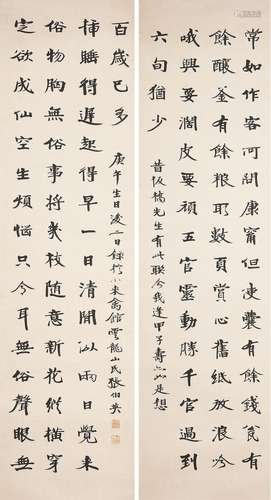 常如作客何問康寧但使囊有餘錢甕有
餘釀釜有餘糧取數頁賞心舊紙放浪吟
哦興要闊皮要頑五官靈動勝千官過到
六旬猶少
昔板橋先生有此聯今我逢甲子壽亦如是想
定欲成仙空生煩惱只令耳無俗聲眼無
俗物胸無俗事將幾枝隨意新花縱橫穿
插睡得遲起得早一日清閒似兩日覺來
百歲已多
庚午生日後二日錄於小來禽館雲龍山民張伯英